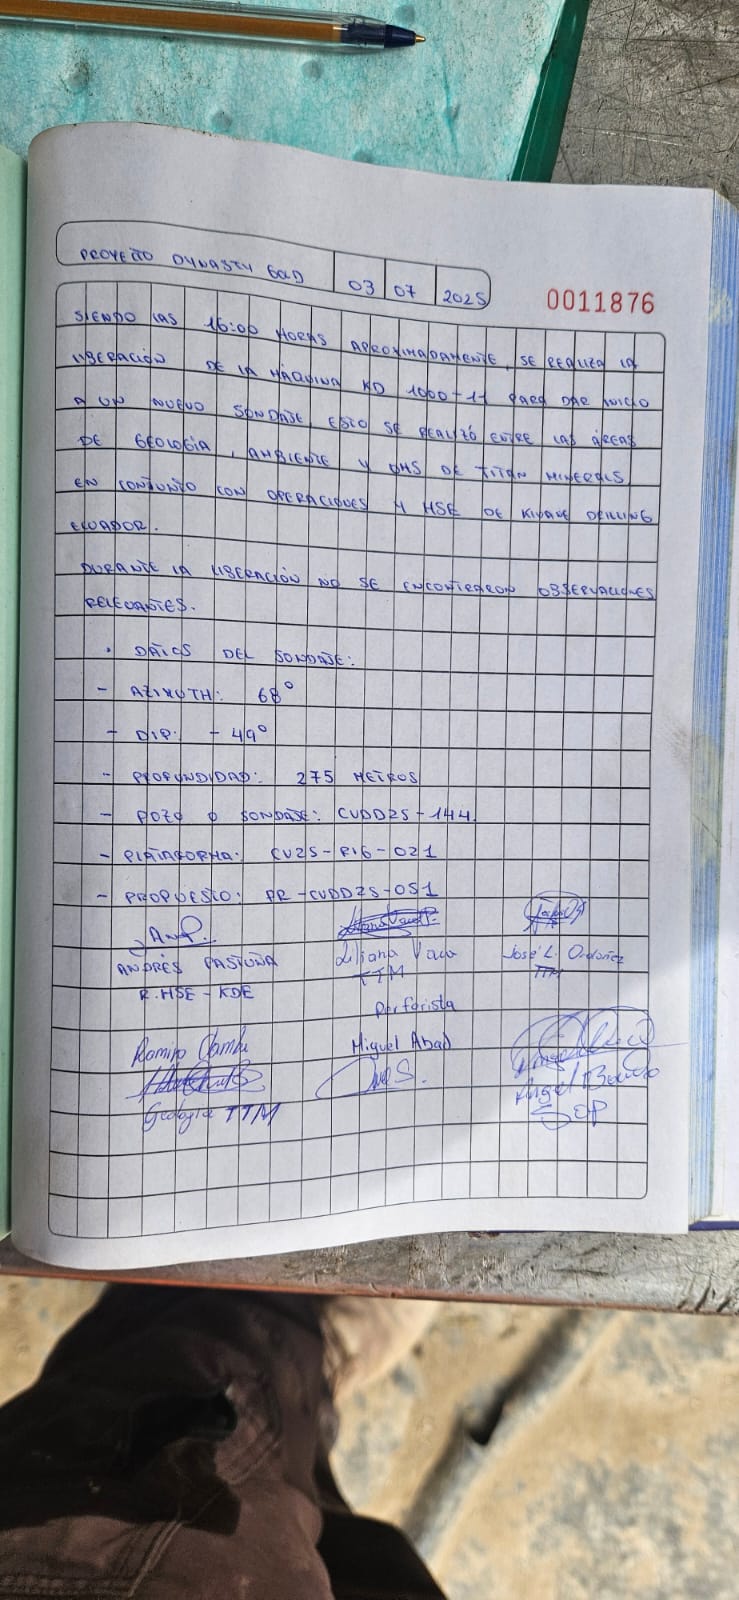 PROYECTO DYNASTY GOLD 03 07 2025 0011876
SIENDO LAS 16:00 HORAS APROXIMADAMENTE, SE REALIZA LA
LIBERACIÓN DE LA MÁQUINA KD 1000-11 PARA DAR INICIO
A UN NUEVO SONDAJE, ESTO SE REALIZÓ ENTRE LAS ÁREAS
DE GEOLOGÍA, AMBIENTE Y OHS DE TITAN MINERALS
EN CONJUNTO CON OPERACIONES Y HSE DE DRILLING
ECUADOR.
DURANTE LA LIBERACIÓN NO SE ENCONTRARON OBSERVACIONES
RELEVANTES.
• DATOS DEL SONDAJE:
- AZIMUTH: 68°
- DIP: - 49°
- PROFUNDIDAD: 275 METROS
- POZO O SONDAJE: CVDD25-144.
- PLATAFORMA: CV25-P16-021
- PROPUESTO: PR-CVDD25-051
ANDRÉS PASTUÑA Liliana Vaca José L. Ordoñez
R. HSE - KDE TTM TTM
Perforista
Ramiro Miguel Abad
Angel
Geología TTM